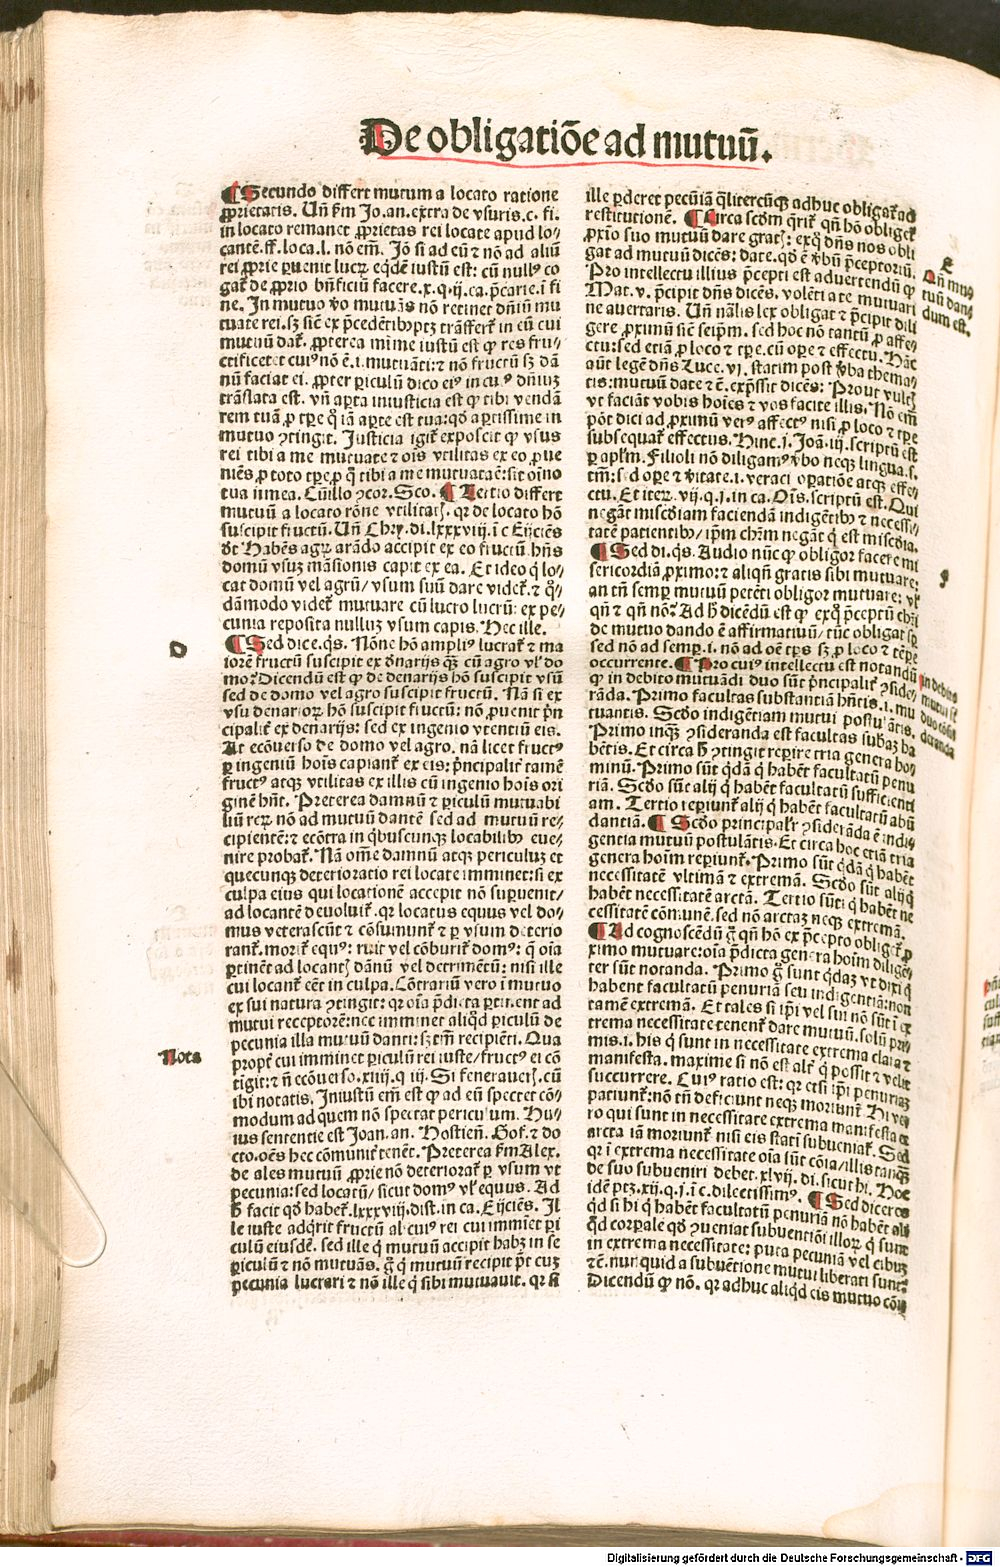 De obligatiōe ad mutuū.
¶ Secundo differt mutuum a locato ratione
ꝓprietatis. Vn̄ ẜm Jo. an. extra de vsuris. c. fi.
in locato remanet ꝓprietas rei locate apud lo⸗
cantē. ff. loca. l. nō em̄. Jō si ad eū ⁊ nō ad aliū
rei ꝓprie ꝑuenit lucꝝ eqdē iustū est: cū nullꝰ co
gat̄ de ꝓprio bn̄ficiū facere. x. q. ij. ca. p̄carie. ī fi
ne. In mutuo v̄o mutuās nō retinet dn̄iū mu
tuate rei. sꝫ sic̄ ex p̄cedētibꝰ ptꝫ trāffert̄ in eū cui
mutuū dat̄. ꝓpterea mīme iustū est ꝙ res fru⸗
ctificet et cuiꝰ nō ē. i. mutuāti: ⁊ nō fructū sꝫ dā
nū faciat ei. ꝓpter ꝑiculū dico eiꝰ in cuꝰ dn̄iuꝫ
trāslata est. vn̄ aꝑta iniusticia est ꝙ tibi vendā
rem tuā ꝓ tꝑe q̄ iā aꝑte est tua: qđ aꝑtissime in
mutuo ꝯtingit. Justicia igit̄ exposcit ꝙ vsus
rei tibi a me mutuate ⁊ oīs vtilitas ex eo ꝓue
niēs ꝓ toto tꝑe ꝓ q̄ tibi a me mutuata ē: sit oīno
tua iī mea. Cū illo ꝯcor. Sco. ¶ Tertio differt
mutuū a locato rōne vtilitatꝭ. qꝛ de locato hō
suscipit fructū. Vn̄ Chry. di. lxxxviij. ī c Eijciēs
dt̄ Habēs agꝝ arādo accipit ex eo fructū. hn̄s
domū vsuꝫ māsionis capit ex ea. Et ideo q̄ lo⸗
cat domū vel agrū/ vsum suū dare videt̄. ⁊ q̄⸗
dāmodo videt̄ mutuare cū lucro lucrū: ex pe⸗
cunia reposita nulluꝫ vsum capis. Hec ille.
D
¶ Sed dice. q̄s. Nōne hō ampliꝰ lucrat̄ ⁊ ma
iorē fructū suscipit ex dn̄arijs q̄ꝫ cū agro vl̓ do
mo? Dicendū est ꝙ de denarijs hō suscipit vsū
sed de domo vel agro suscipit fructū. Nā si ex
vsu denarioꝝ hō suscipit fructū: nō ꝓuenit p̄n
cipalit̄ ex denarijs: sed ex ingenio vtentiū eis.
At ecōuerso de domo vel agro. nā licet fructꝰ
ꝑ ingeniū hoīs capiant̄ ex eis: p̄ncipalit̄ tamē
fructꝰ atqꝫ vtilitas ex illis cū ingenio hoīs ori
ginē hn̄t. Preterea damnū ⁊ ꝑiculū mutuabi
liū reꝝ nō ad mutuū dantē sed ad mutuū re⸗
cipientē: ⁊ ecōtra in qbuscunqꝫ locabilibꝰ eue⸗
nire probat̄. Nā om̄e damnū atqꝫ periculuꝫ et
quecunqꝫ deterioratio rei locate imminet: si ex
culpa eius qui locationē accepit nō suꝑuenit/
ad locantē deuoluit̄. qꝛ locatus equus vel do⸗
mus veterascūt ⁊ cōsumunt̄ ⁊ ꝑ vsum deterio
rant̄. morit̄ equꝰ: ruit vel cōburit̄ domꝰ: q̄ oīa
ꝑtinēt ad locantꝭ dānū vel detrimētū: nisi ille
cui locant̄ eēt in culpa. Cōtrariū vero ī mutuo
ex sui natura ꝯtingit: qꝛ oīa p̄dicta ꝑtinent ad
mutui receptorē: nec imminet aliqd̄ ꝑiculū de
pecunia illa mutuū danti: sꝫ tm̄ recipiēti. Qua
Nota
propt̄ cui imminet ꝑiculū rei iuste/ fructꝰ ei cō
tīgit: ⁊ n̄ ecōuerso. xiiij. q iij. Si feneraueꝭ. cū
ibi notatis. Iniustū em̄ est ꝙ ad eū spectet cō⸗
modum ad quem nō spectat periculum. Hu⸗
ius sententie est Joan. an. Hostien̄. Gof. ⁊ do
cto. oēs hec cōmunit̄ tenēt. Preterea ẜm Alex.
de ales mutuū ꝓprie nō deteriorat̄ ꝑ vsum vt
pecunia: sed locatū/ sicut domꝰ vl̓ equus. Ad
h̄ facit qđ habet̄. lxxxviij. dist. in ca. Eijciēs. Il
le iuste adqrit fructū alicuiꝰ rei cui immīet ꝑi
culū eiusdē. sed ille q̄ mutuū accipit habꝫ in se
ꝑiculū ⁊ nō mutuās. g̊ q̄ mutuū recipit pt̄ cuꝫ
pecunia lucrari ⁊ nō ille q̄ sibi mutuauit. qꝛ si
ille ꝑderet pecuniā q̄litercūqꝫ adhuc obligat̄ ad
restitutionē. ¶ Circa scd̄m q̄rit̄ qn̄ hō obliget̄
ꝓxīo suo mutuū dare gratꝭ: exq̊ dn̄s nos obli
E
gat ad mutuū dicēs: date. qđ ē v̄bū p̄ceptoriū.
Qn̄ mu⸗
tuū dan
dum est.
Pro intellectu illius p̄cepti est aduertendū ꝙ
Mat. v. p̄cipit dn̄s dicēs. volēti a te mutuari
ne auertaris. Vn̄ nālis lex obligat ⁊ p̄cipit dili
gere ꝓximū sic̄ seip̄m. sed hoc nō tantū ꝓ affe⸗
ctu: sed etiā ꝓ loco ⁊ tꝑe. cū oꝑe ⁊ effectu. Hāc
aūt legē dn̄s Luce. vj. statim post v̄ba thema⸗
tis: mutuū date ⁊ č. exp̄ssit dicēs: Prout vultꝭ
vt faciāt vobis hoīes ⁊ vos facite illis. Nō em̄
pōt dici ad ꝓximū verꝰ affectꝰ nisi ꝓ loco ⁊ tꝑe
subsequat̄ effectus. Hinc. j. Joā. iij. scriptū est
ꝑ apl̓m. Filioli nō diligamꝰ v̄bo neqꝫ lingua. s.
tm̄: sed oꝑe ⁊ v̄itate. i. veraci oꝑatiōe atqꝫ effe⸗
ctu. Et iteꝝ. vij. q. j. in ca. Oīs. scriptū est. Qui
negāt misc̄diam faciendā indigētibꝰ ⁊ necessi⸗
tatē patientibꝰ/ ip̄m chm̄ negāt q̄ est misc̄dia.
¶ Sed di. q̄s. Audio nūc ꝙ obligor facere mi
F
sericordiā ꝓximo: ⁊ aliqn̄ gratis sibi mutuare:
an tn̄ semꝑ mutuū petēti obligor mutuare: vl̓
qn̄ ⁊ qn̄ nō? Ad h̄ dicēdū est ꝙ exq̊ p̄ceptū chꝛi
de mutuo dando ē affirmatiuū/ tūc obligat sꝑ
sed nō ad semꝑ. i. nō ad oē tꝑs sꝫ ꝓ loco ⁊ tēpe
occurrente. ¶ Pro cuiꝰ intellectu est notandū
In debito
mutui sūt
duo cōsi
deranda
ꝙ in debito mutuādi duo sūt p̄ncipalit̄ ꝯside⸗
rāda. Primo facultas substantiā hn̄tis. i. mu
tuantis. Scd̊o indigētiam mutui postulātis.
Primo inqꝫ ꝯsideranda est facultas subaꝫ ha
bētis. Et circa h̄ ꝯtingit reꝑire tria genera ho⸗
minū. Primo sūt qdā q̄ habēt facultatū penu
riā. Scd̊o sūt alij q̄ habēt facultatū sufficienti
am. Tertio reꝑiunt̄ alij q̄ habēt facultatū abū
dantiā. ¶ Scd̊o principalr̄ ꝯsiderāda ē indi⸗
gentia mutuū postulātis. Et circa hoc etiā tria
genera hoīm reꝑiunt̄. Primo sūt qdā q̄ habēt
necessitatē vltimā ⁊ extremā. Scd̊o sūt alij q̄
habēt necessitatē arctā. Tertio sūt q̄ habēt ne
cessitatē cōmunē. sed nō arctaꝫ neqꝫ extremā.
¶ Ad cognoscēdū g̊ qn̄ hō ex p̄cepto obliget̄ ꝓ
ximo mutuare: oīa p̄dicta genera hoīm diligē⸗
ter sūt notanda. Primo g̊ sunt qdaꝫ vt dixi q̄
habent facultatū penuriā seu indigentiā: non
tamē extremā. Et tales si ip̄i vel sui nō sūt ī ex
trema necessitate tenent̄ dare mutuū. solū pri⸗
mis. i. his q̄ sunt in necessitate extrema clara ⁊
manifesta. maxime si nō est alt̄ q̄ possit ⁊ velit
succurrere. Cuiꝰ ratio est: qꝛ etsi ip̄i penuriaꝫ
patiunt̄: nō tn̄ deficiunt neqꝫ moriunt̄. Hi ve⸗
ro qui sunt in necessitate extrema manifesta ac
arcta iā moriunt̄ nisi eis statī subueniat̄. Sed
qꝛ ī extrema necessitate oīa sūt cōīa/ illis tanqꝫ
de suo subueniri debet. xlvij. di. sicut hi. Hoc
idē ptꝫ. xij. q. j. ī c. dilectissimꝭ. ¶ Sed diceres
qd̄ si hi q̄ habēt facultatū penuriā nō habēt ali
qd̄ corꝑale qđ ꝯueniat subuentiōi illoꝝ q̄ sunt
in extrema necessitate: puta pecuniā vel cibuꝫ
⁊ č. nunquid a subuētione mutui liberati sunt?
Dicendū ꝙ nō. qꝛ adhuc aliqd̄ eis mutuo cōu